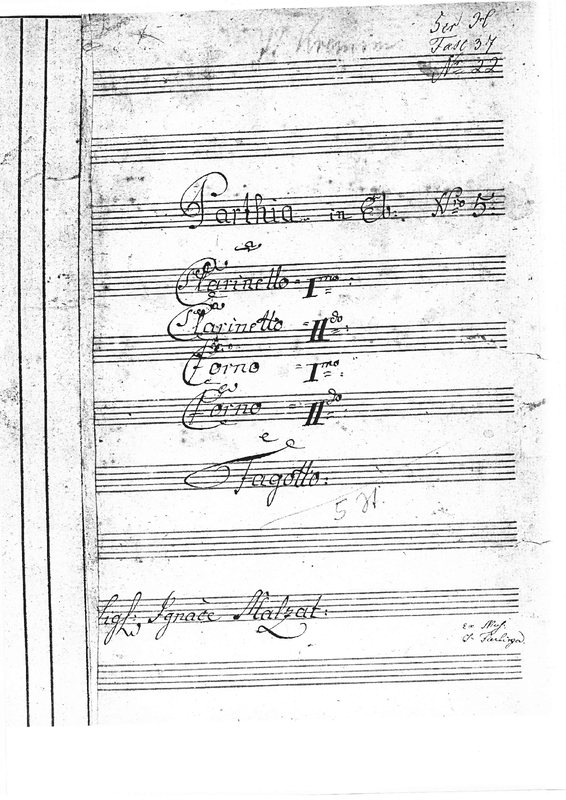 Fasc 37
No 22
Parthia in Eb. Nro 5
a
Clarinetto Imo:
Clarinetto IIdo:
Corno Imo:
Corno IIdo:
e
Fagotto:
Sigl: Ignace Malzat: